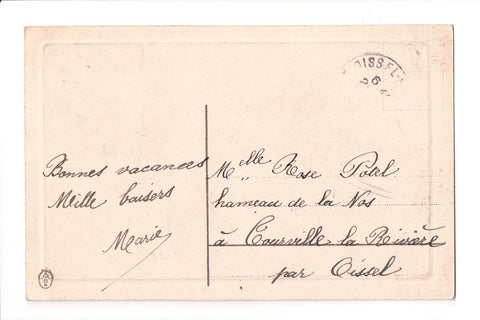 OISSEL
Bonnes vacances
Mille baisers
Marie
Melle Rose Potel
hameau de la Nos
à Tourville la Rivière
par Oissel